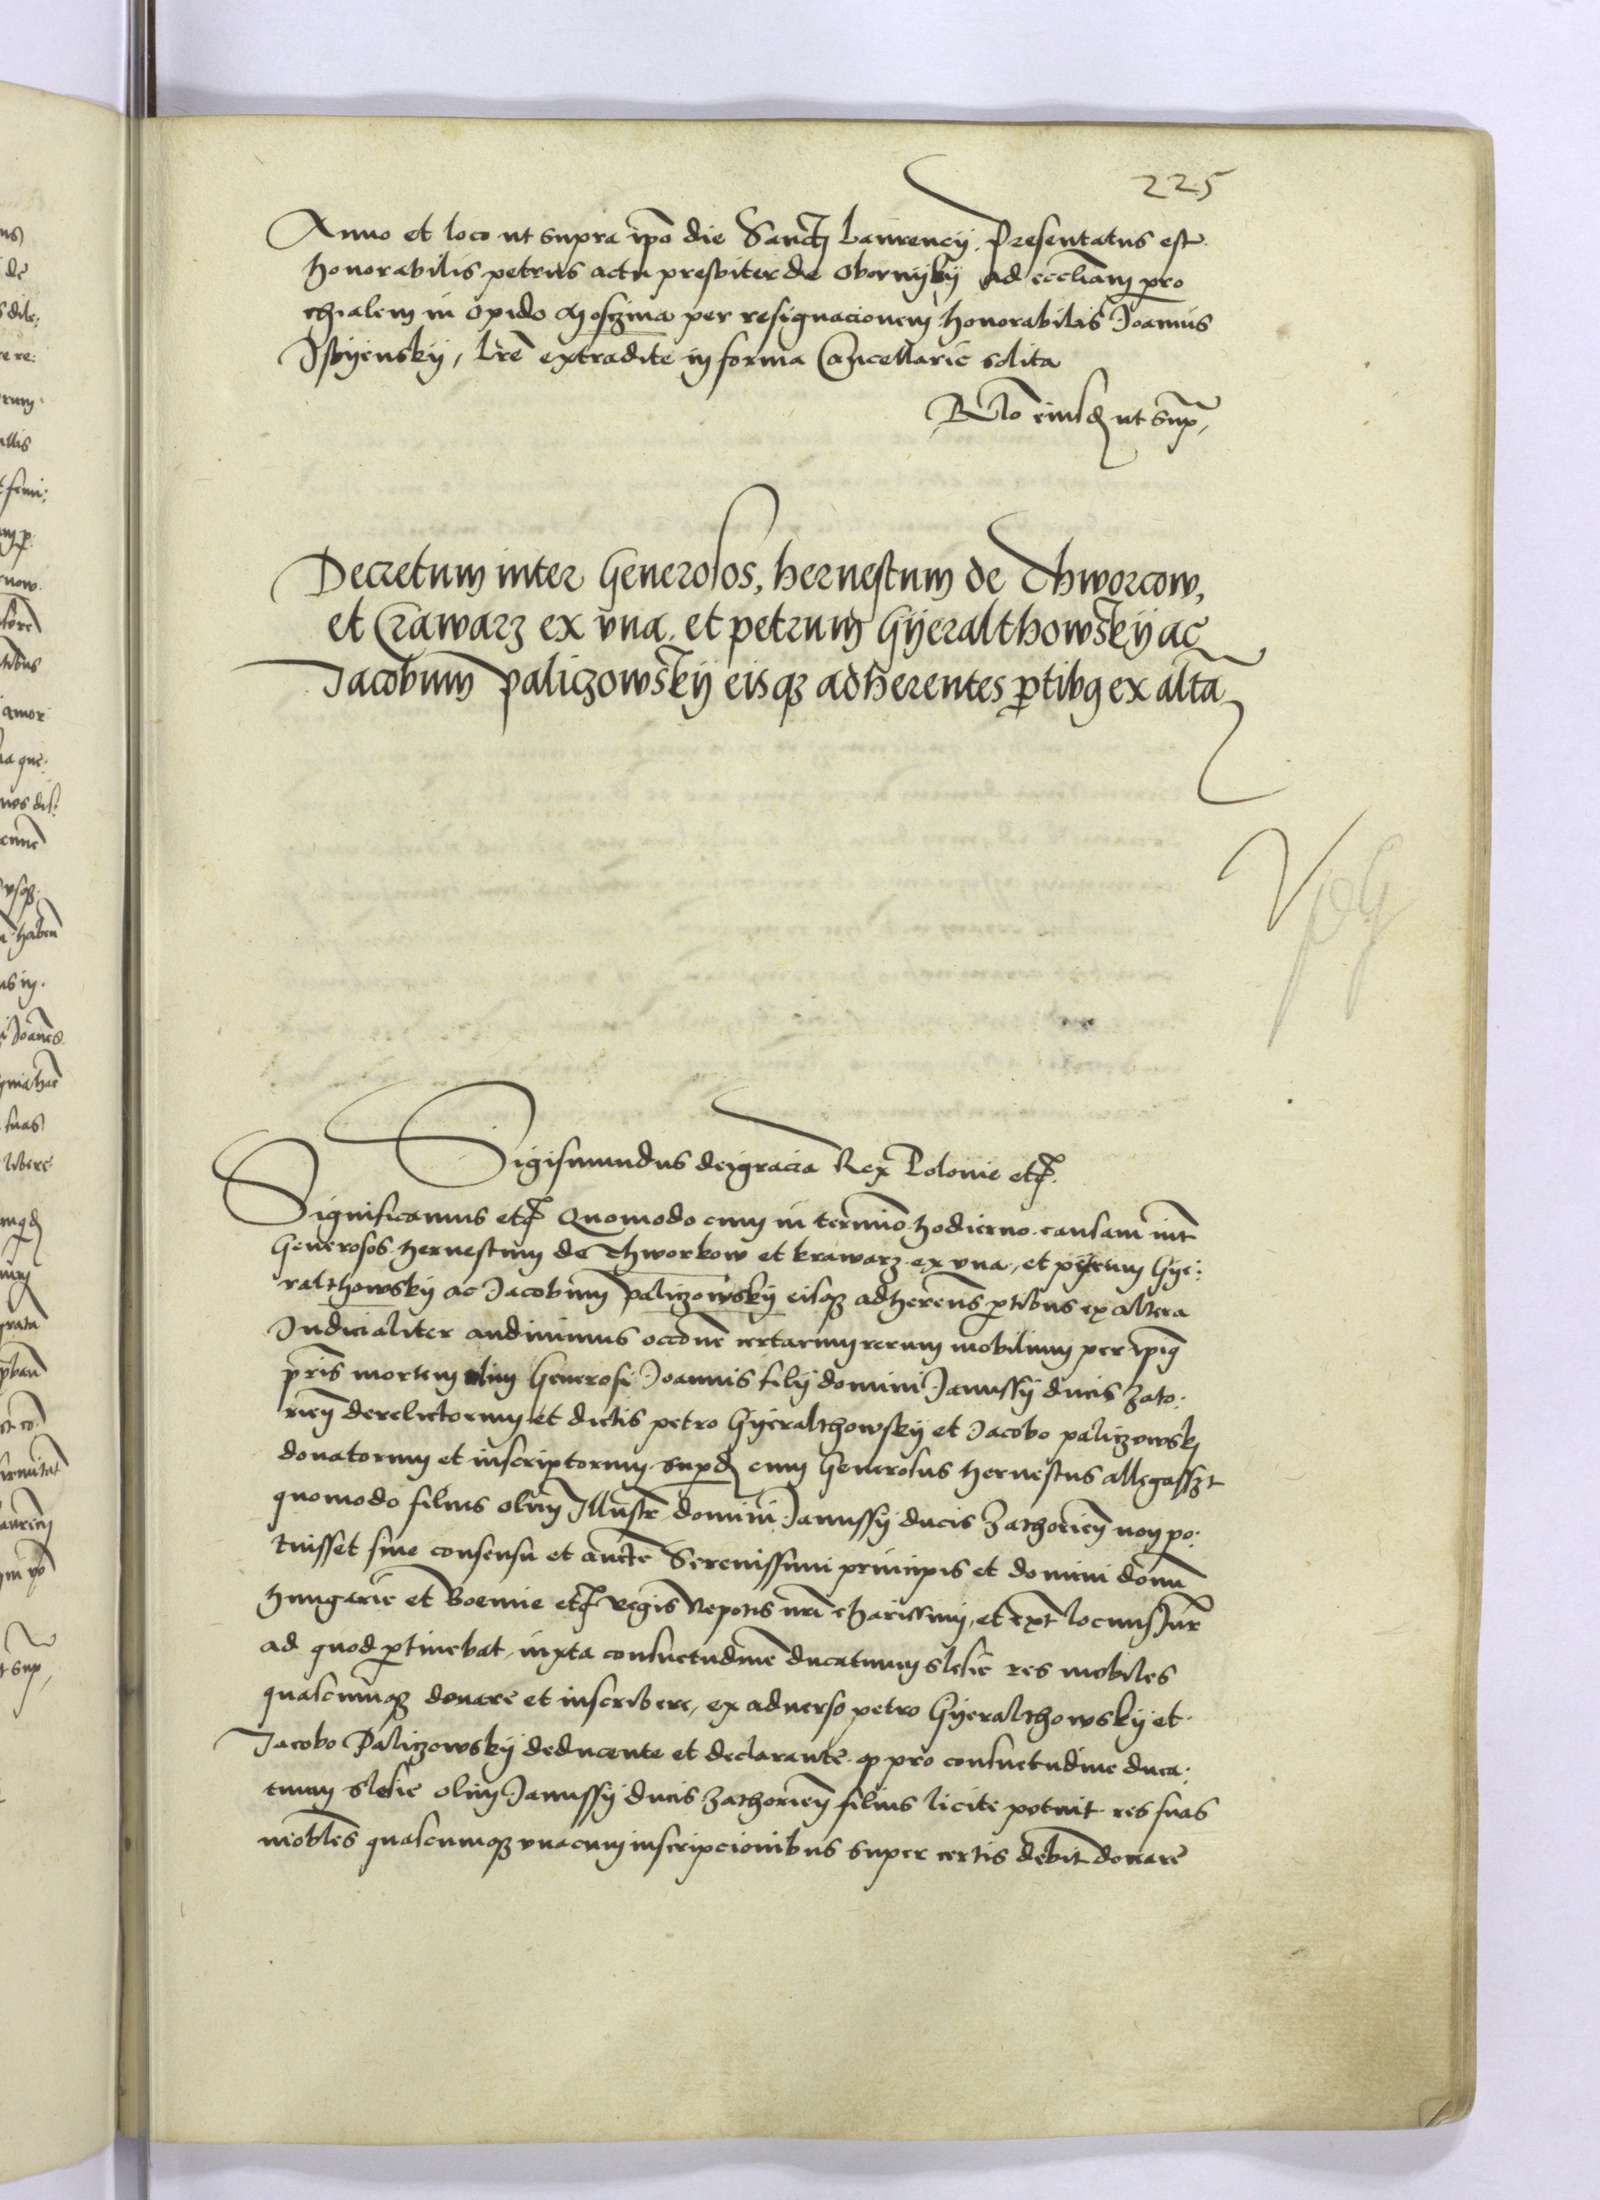 225
Anno et loco ut supra ipo die Sancti Laurencij Presentatus est
honorabilis petrus actu presbiter de Obornijky ad eccliam paro
chialem in opido Mosczina per resignacionem honorabilis Joannis
lre extradite in forma Cancellarie solita
Rlo eiusd ut sup,
Decretum inter Generosos, hernestum de Thworcow,
et Crawarz ex vna. et petrum Gijeralthowskij ac
Jacobum paliczowskij eisqz adherentes ptibus ex alta
Sigismundus dei gracia Rex Polonie etc.
Significamus etc Quomodo cum in termino hodierno causam int
Generosos hernestum de Thworkow et krawarz ex vna, et petrum Gije:
ralthowskij ac Jacobum paliczowskij eisqz adherens ptibus ex altera
Judicialiter audiuimus occone certarum rerum mobilium per
mortem olim Generosi Joannis filij domini Janussij ducis Zato:
rien derelictorum et dictis petro Gijeralthowskij et Jacobo paliczowski
donatorum et inscriptorum supd cum Generosus hernestus allegasset
quomodo filius olim Illustr domini Janussij ducis Zathorien non po:
tuisset sine consensu et aucte Serenissimi principis et domini domi
hungarie et Boemie etc regis Nepotis nri charissimi, et locum Jure
ad quod ptinebat, iuxta consuetudine ducatuum slesie res mobiles
quascumqz donare et inscribere, ex aduerso petro Gijeralthowskij et
Jacobo Paliczowskij deducente et declarante q pro consuetudine duca:
tuum slesie olim Janussij ducis Zathorien filius licite potuit res suas
mobles quascumqz vnacum inscripcionibus super certis debit donare